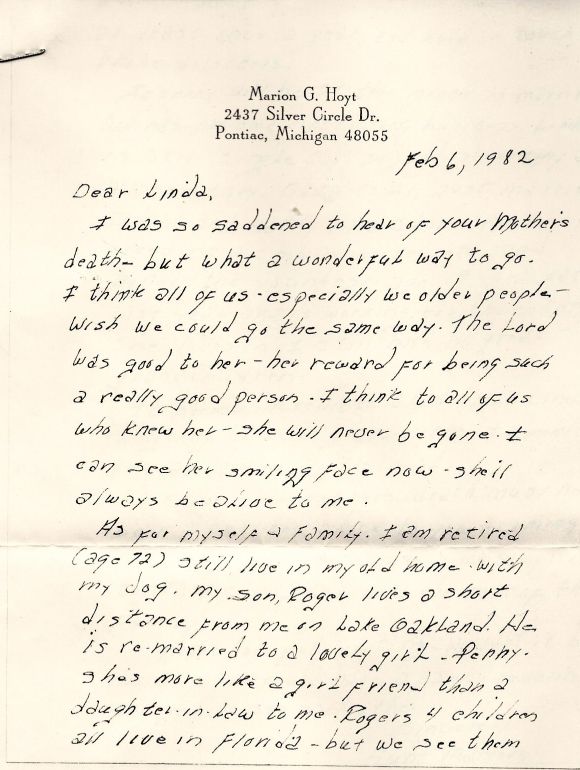 Marion G. Hoyt
2437 Silver Circle Dr.
Pontiac, Michigan 48055
Feb 6, 1982
Dear Linda,
I was so saddened to hear of your Mother's
death - but what a wonderful way to go.
I think all of us - especially we older people -
wish we could go the same way. The Lord
was good to her - her reward for being such
a really good person. I think to all of us
who knew her - she will never be gone. I
can see her smiling face now - she'll
always be alive to me.
As for myself & family. I am retired
(age 72) still live in my old home - with
my dog. my son, Roger lives a short
distance from me on Lake Oakland. He
is re-married to a lovely girl - Penny.
she's more like a girl friend than a
daughter-in-law to me. Rogers 4 children
all live in Florida - but we see them